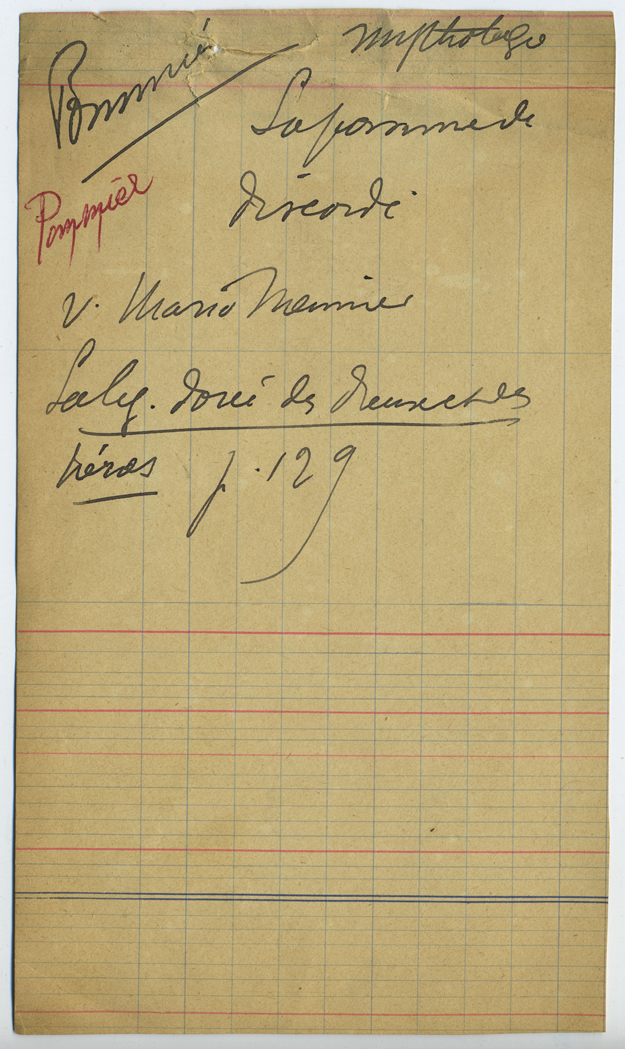 Pommier
mythologie
La pomme de
discorde
Pommier
v. Mario Meunier
La lég. dorée des dieux et des
héros p. 129